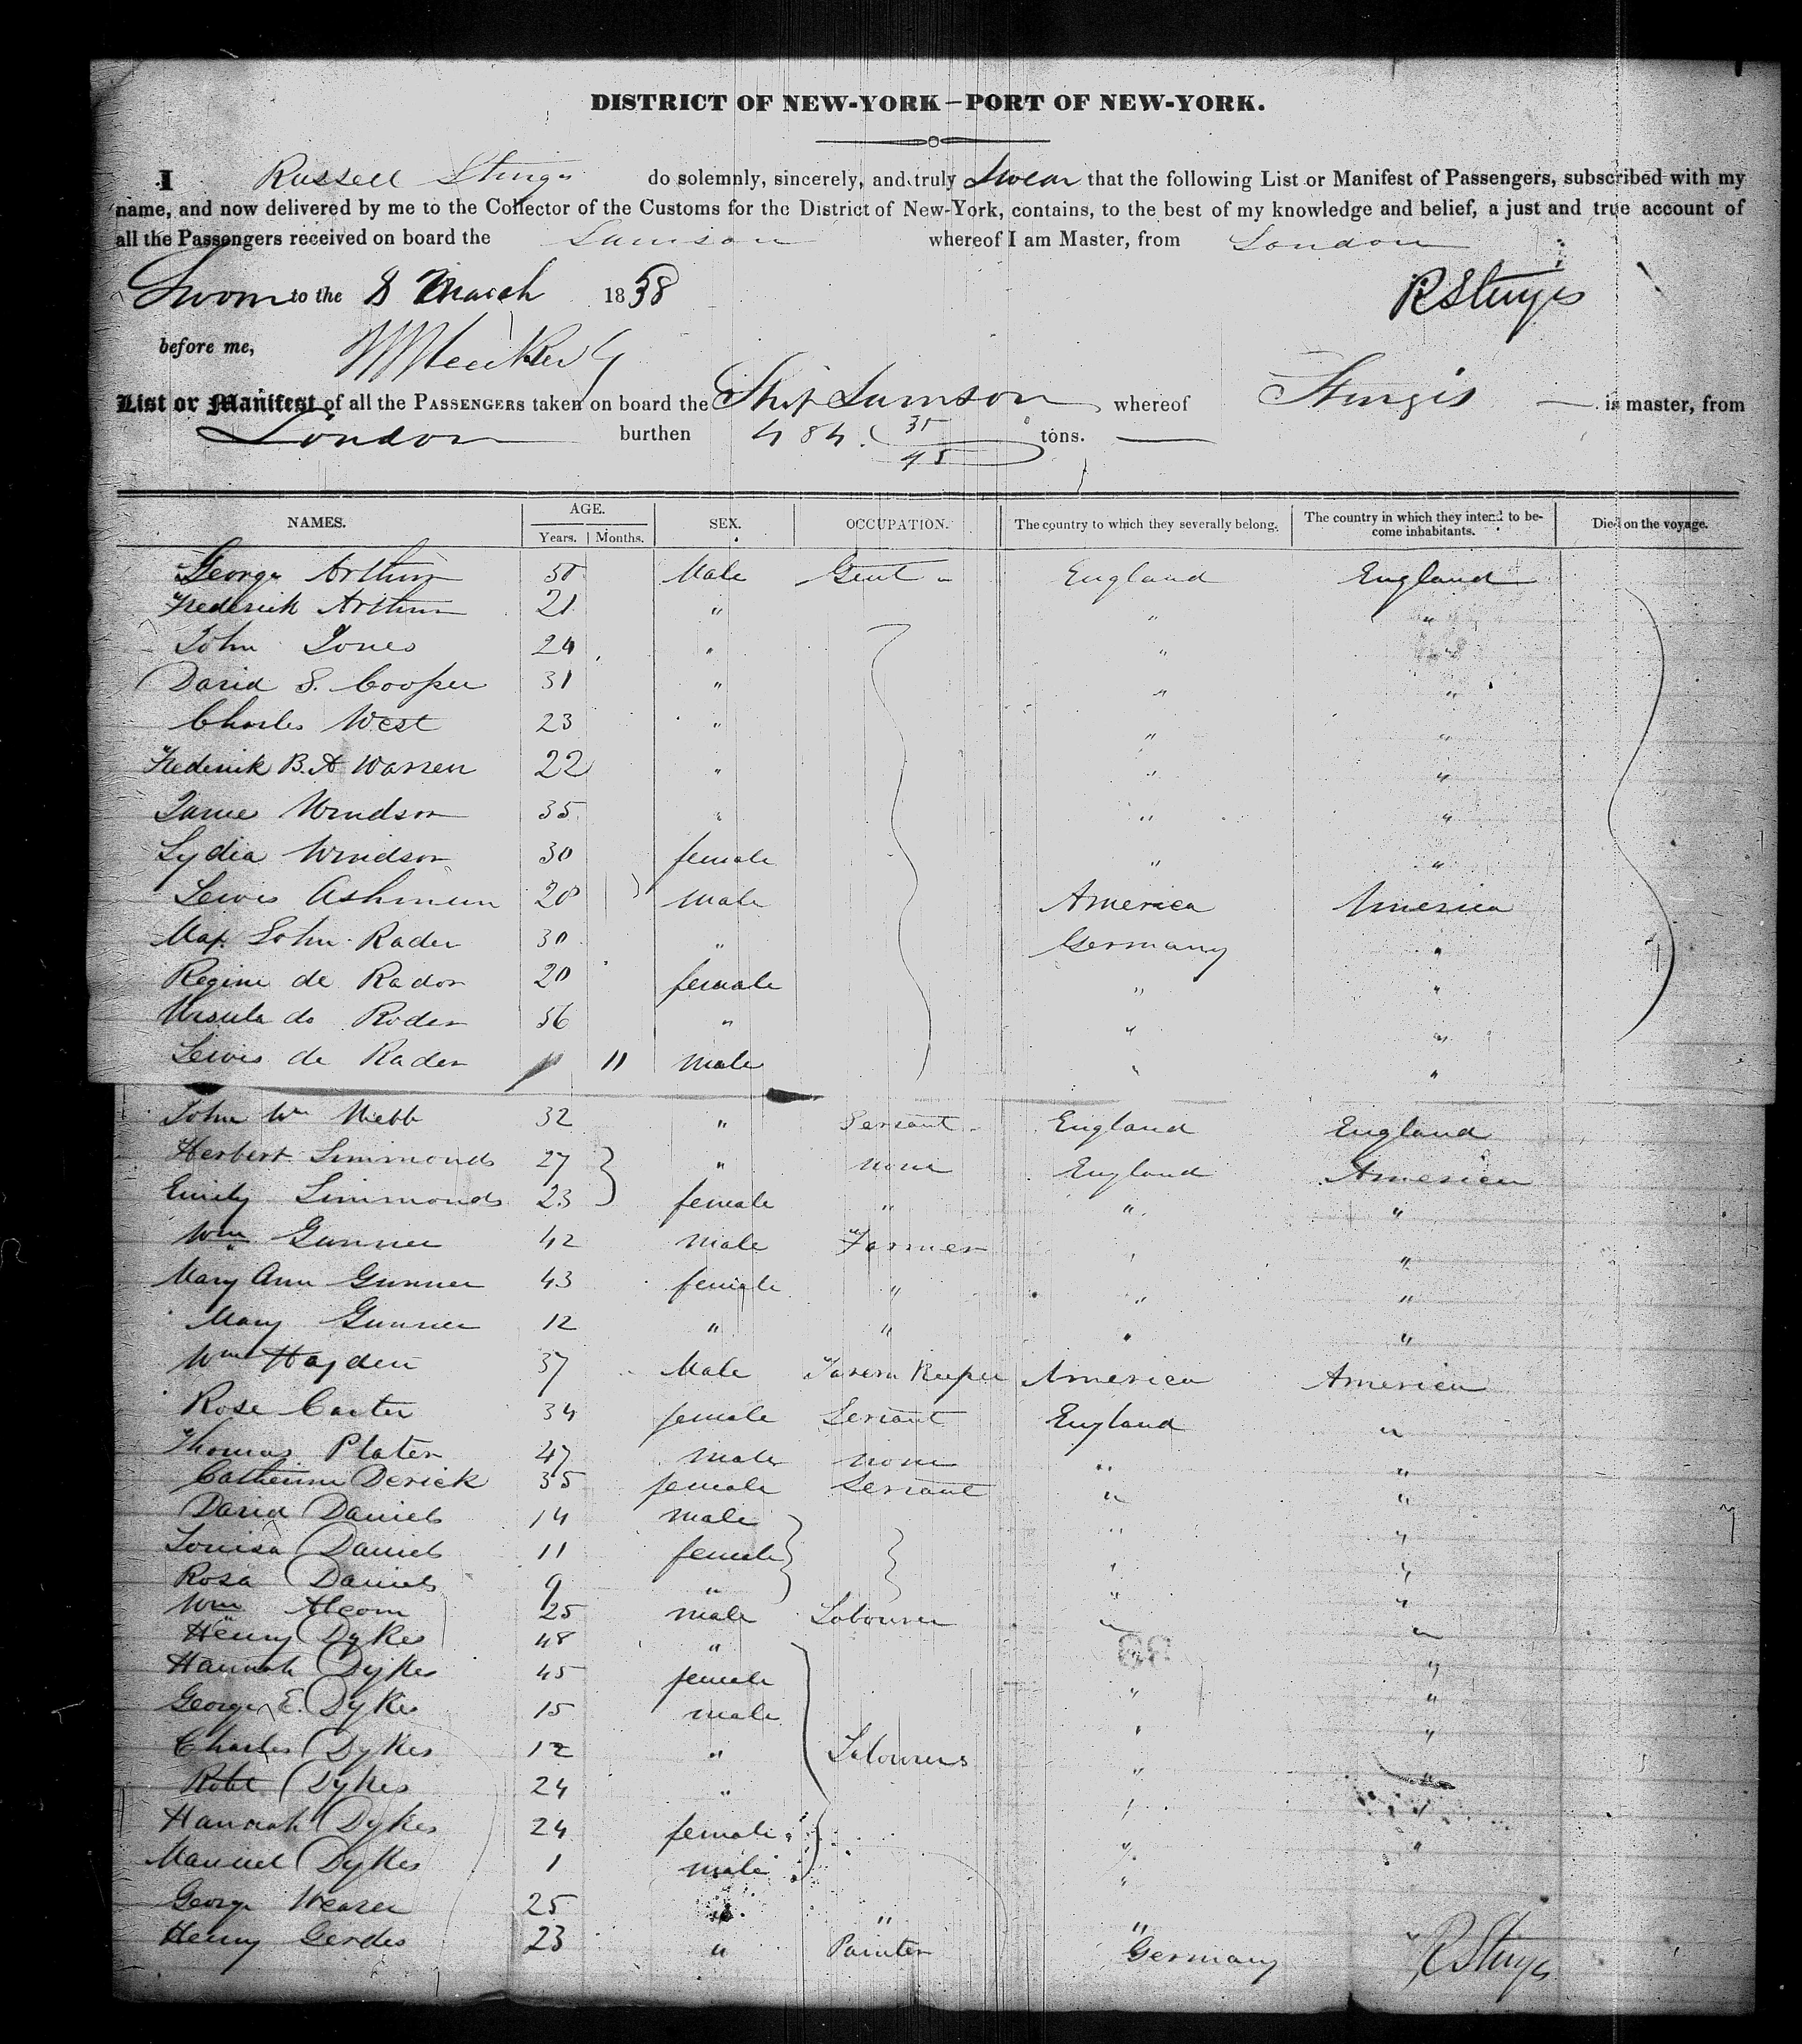 DISTRICT OF NEW-YORK—PORT OF NEW-YORK.
I Russell Sturgis do solemnly, sincerely, and truly Swear that the following List or Manifest of Passengers, subscribed with my
name, and now delivered by me to the Collector of the Customs for the District of New-York, contains, to the best of my knowledge and belief, a just and true account of
all the Passengers received on board the Samson whereof I am Master, from London
Sworn to the 8 March 1838
R Sturgis
before me,
List or Manifest of all the PASSENGERS taken on board the Ship Samson whereof Sturgis is master, from
London burthen 484 35/45 tons.
NAMES. AGE. SEX. OCCUPATION. The country to which they severally belong. The country in which they intend to become inhabitants. Died on the voyage.
Years. Months.
George Arthur 50 Male Gent England England
Frederick Arthur 21 " " "
John Jones 24 " " "
David S. Cooper 31 " " "
Charles West 23 " " "
Frederik B. A Warren 22 " " "
James Windsor 35 " " "
Lydia Windsor 30 female " "
Lewis Ashmun 20 male America America
Max. John Rader 30 " Germany "
Regine de Rador 20 female " "
Ursula de Roder 56 " " "
Lewis de Rader 11 male " "
John Wm Webb 32 " Servant England England
Herbert Simmonds 27 " none England America
Emily Simmonds 23 female " " "
Wm Gunner 42 male Farmer " "
Mary Ann Gunner 43 female " " "
Mary Gunner 12 " " " "
Wm Hayden 37 Male Tavern Keeper America America
Rose Carter 34 female Servant England "
Thomas Plater 47 male none " "
Catherine Derick 35 female Servant " "
David Daniels 14 male " "
Louisa Daniels 11 female " "
Rosa Daniels 9 " " "
Wm Alcorn 25 male Labourer " "
Henry Dykes 48 " "
Hannah Dykes 45 female " "
George E. Dykes 15 male " "
Charles Dykes 12 " Labourers " "
Robt Dykes 24 " " "
Hannah Dykes 24 female " "
Manuel Dykes 1 male " "
George Weaver 25 " " "
Henry Gerdes 23 " Painter Germany "
R Sturgis